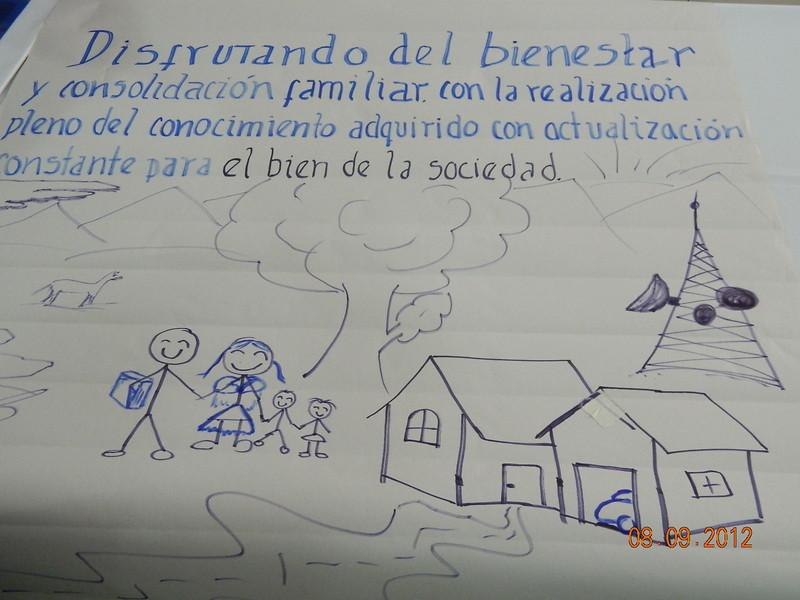 Disfrutando del bienestar
y consolidación familiar. con la realización
pleno del conocimiento adquirido con actualización
constante para el bien de la sociedad.
08.09.2012